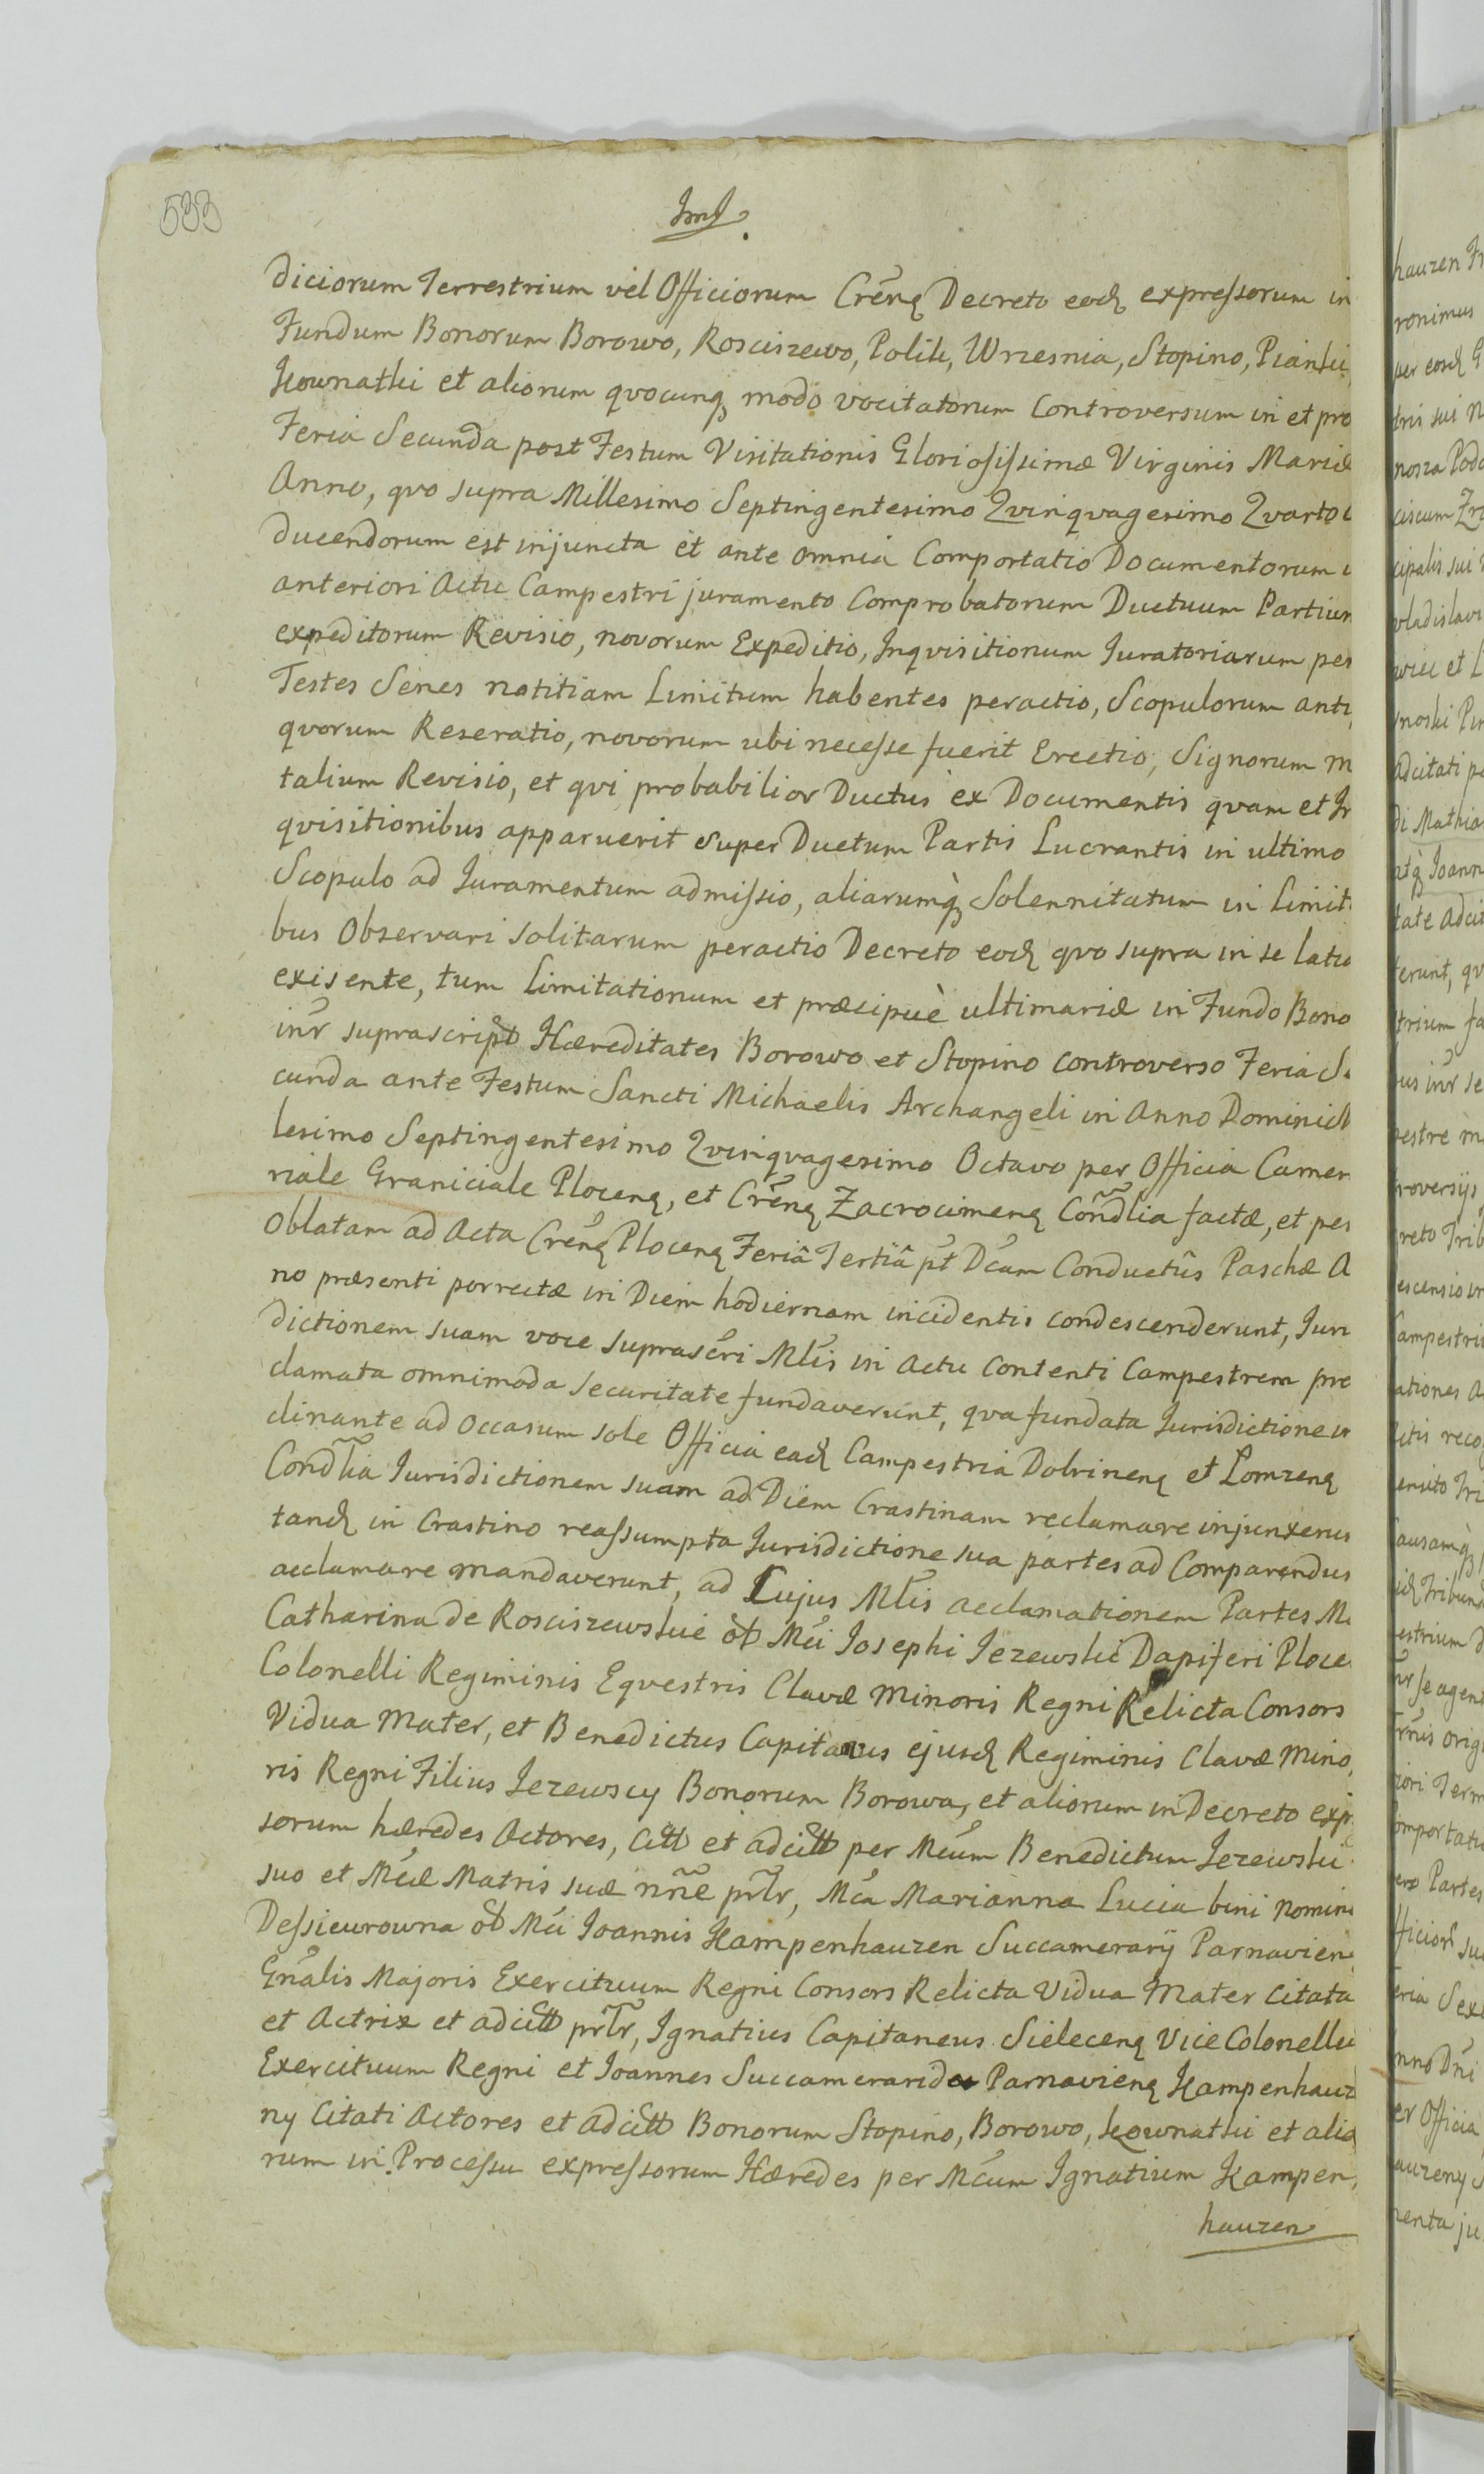 533
diciorum Terrestrium vel Officiorum Cren̄ę Decreto eodę expressorum in
Fundum Bonorum Borowo, Rosciszewo, Polik, Wrzesnia, Stopino, Pianki,
Kownatki et aliorum qvocunqȝ modo vocitatorum Controversum in et pro
Feria Secunda post Festum Visitationis Gloriosissimæ Virginis Mariæ
Anno, qvo supra Millesimo Septingentesimo Qvinqvagesimo Qvarto
ducendorum est injuncta et ante omnia Comportatio Documentorum
anteriori Actu Campestri juramento Comprobatorum Ductuum Partium
expeditorum Revisio, novorum Expeditio, Inqvisitionum Iuratoriarum per
Testes Senes notitiam Limitum habentes peractio, Scopulorum anti
qvorum Reseratio, novorum ubi necesse fuerit Erectio, Signorum m
talium Revisio, et qvi probabilior Ductus ex Documentis qvam et In
qvisitionibus apparuerit super Ductum Partis Lucrantis in ultimo
Scopulo ad Iuramentum admissio, aliarumqȝ̀ Solennitatum in Limit
bus Observari solitarum peractio Decreto eodę qvo supra in se lato
existente, tum Limitationum et præcipuè ultimariæ in Fundo Bono
inr̄ suprascript Hæreditates Borowo et Stopino controverso Feria Se
cunda ante Festum Sancti Michaelis Archangeli in Anno Domini
lesimo Septingentesimo Qvinqvagesimo Octavo per Officia Camer
riale Graniciale Plocenę, et Cren̄ę Zacrocimenę Cond̄lia factæ, et per
Oblatam ad Acta Cren̄ę Plocenę Feriâ Tertiâ pt̄ Dc̄am Conductûs Paschæ A
no præsenti porrectæ in Diem hodiernam incidentis condescenderunt, Iuri
dictionem suam voce suprascr̄i Mlīs in Actu Contenti Campestrem pro
clamata omnimoda securitate fundaverunt, qva fundata Iurisdictione
clinante ad Occasum sole Officia eadę Campestria Dobrinenę et Lomzenę
Cond̄lia Iurisdictionem suam ad Diem Crastinam reclamare injunxerun
tandę in Crastino reassumpta Iurisdictione sua partes ad Comparendum
acclamare mandaverunt, ad Cujus Mlīs acclamationem Partes M
Catharina de Rosciszewskie ol̄ Mc̄i Iosephi Iezewski Dapiferi Ploce
Colonelli Regiminis Eqvestris Clavæ Minoris Regni Relicta Consors
Vidua Mater, et Benedictus Capitaneus ejusdę Regiminis Clavæ Mino,
ris Regni Filius Iezewscy Bonorum Borowa, et aliorum in Decreto exp
sorum hæredes Actores, Citt̄ et adcitt̄ per Mc̄um Benedictum Iezewski
suo et Mc̄æ Matris suæ nn̄e prl̄r, Mc̄a Marianna Lucia bini nomini
Dessieurowna ol̄ Mc̄i Ioannis Kampenhauzen Succamerarÿ Parnavien
Gn̄alis Majoris Exercituum Regni Consors Relicta Vidua Mater Citata
et Actrix et adcitt̄ prl̄r, Ignatius Capitaneus Sielecenę Vice Colonellu
Exercituum Regni et Ioannes Succamerarides Parnavienę Kampenhauz
ny Citati Actores et Adcitt̄ Bonorum Stopino, Borowo, Kownatki et alio
rum in Processu expressorum Hæredes per Mc̄um Ignatium Kampen,
hauzen